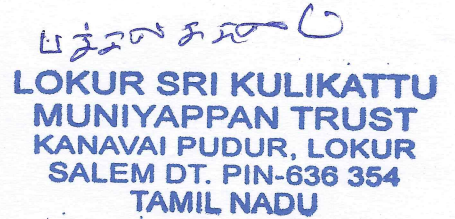 LOKUR SRI KULIKATTU
MUNIYAPPAN TRUST
KANAVAI PUDUR, LOKUR
SALEM DT. PIN-636 354
TAMIL NADU